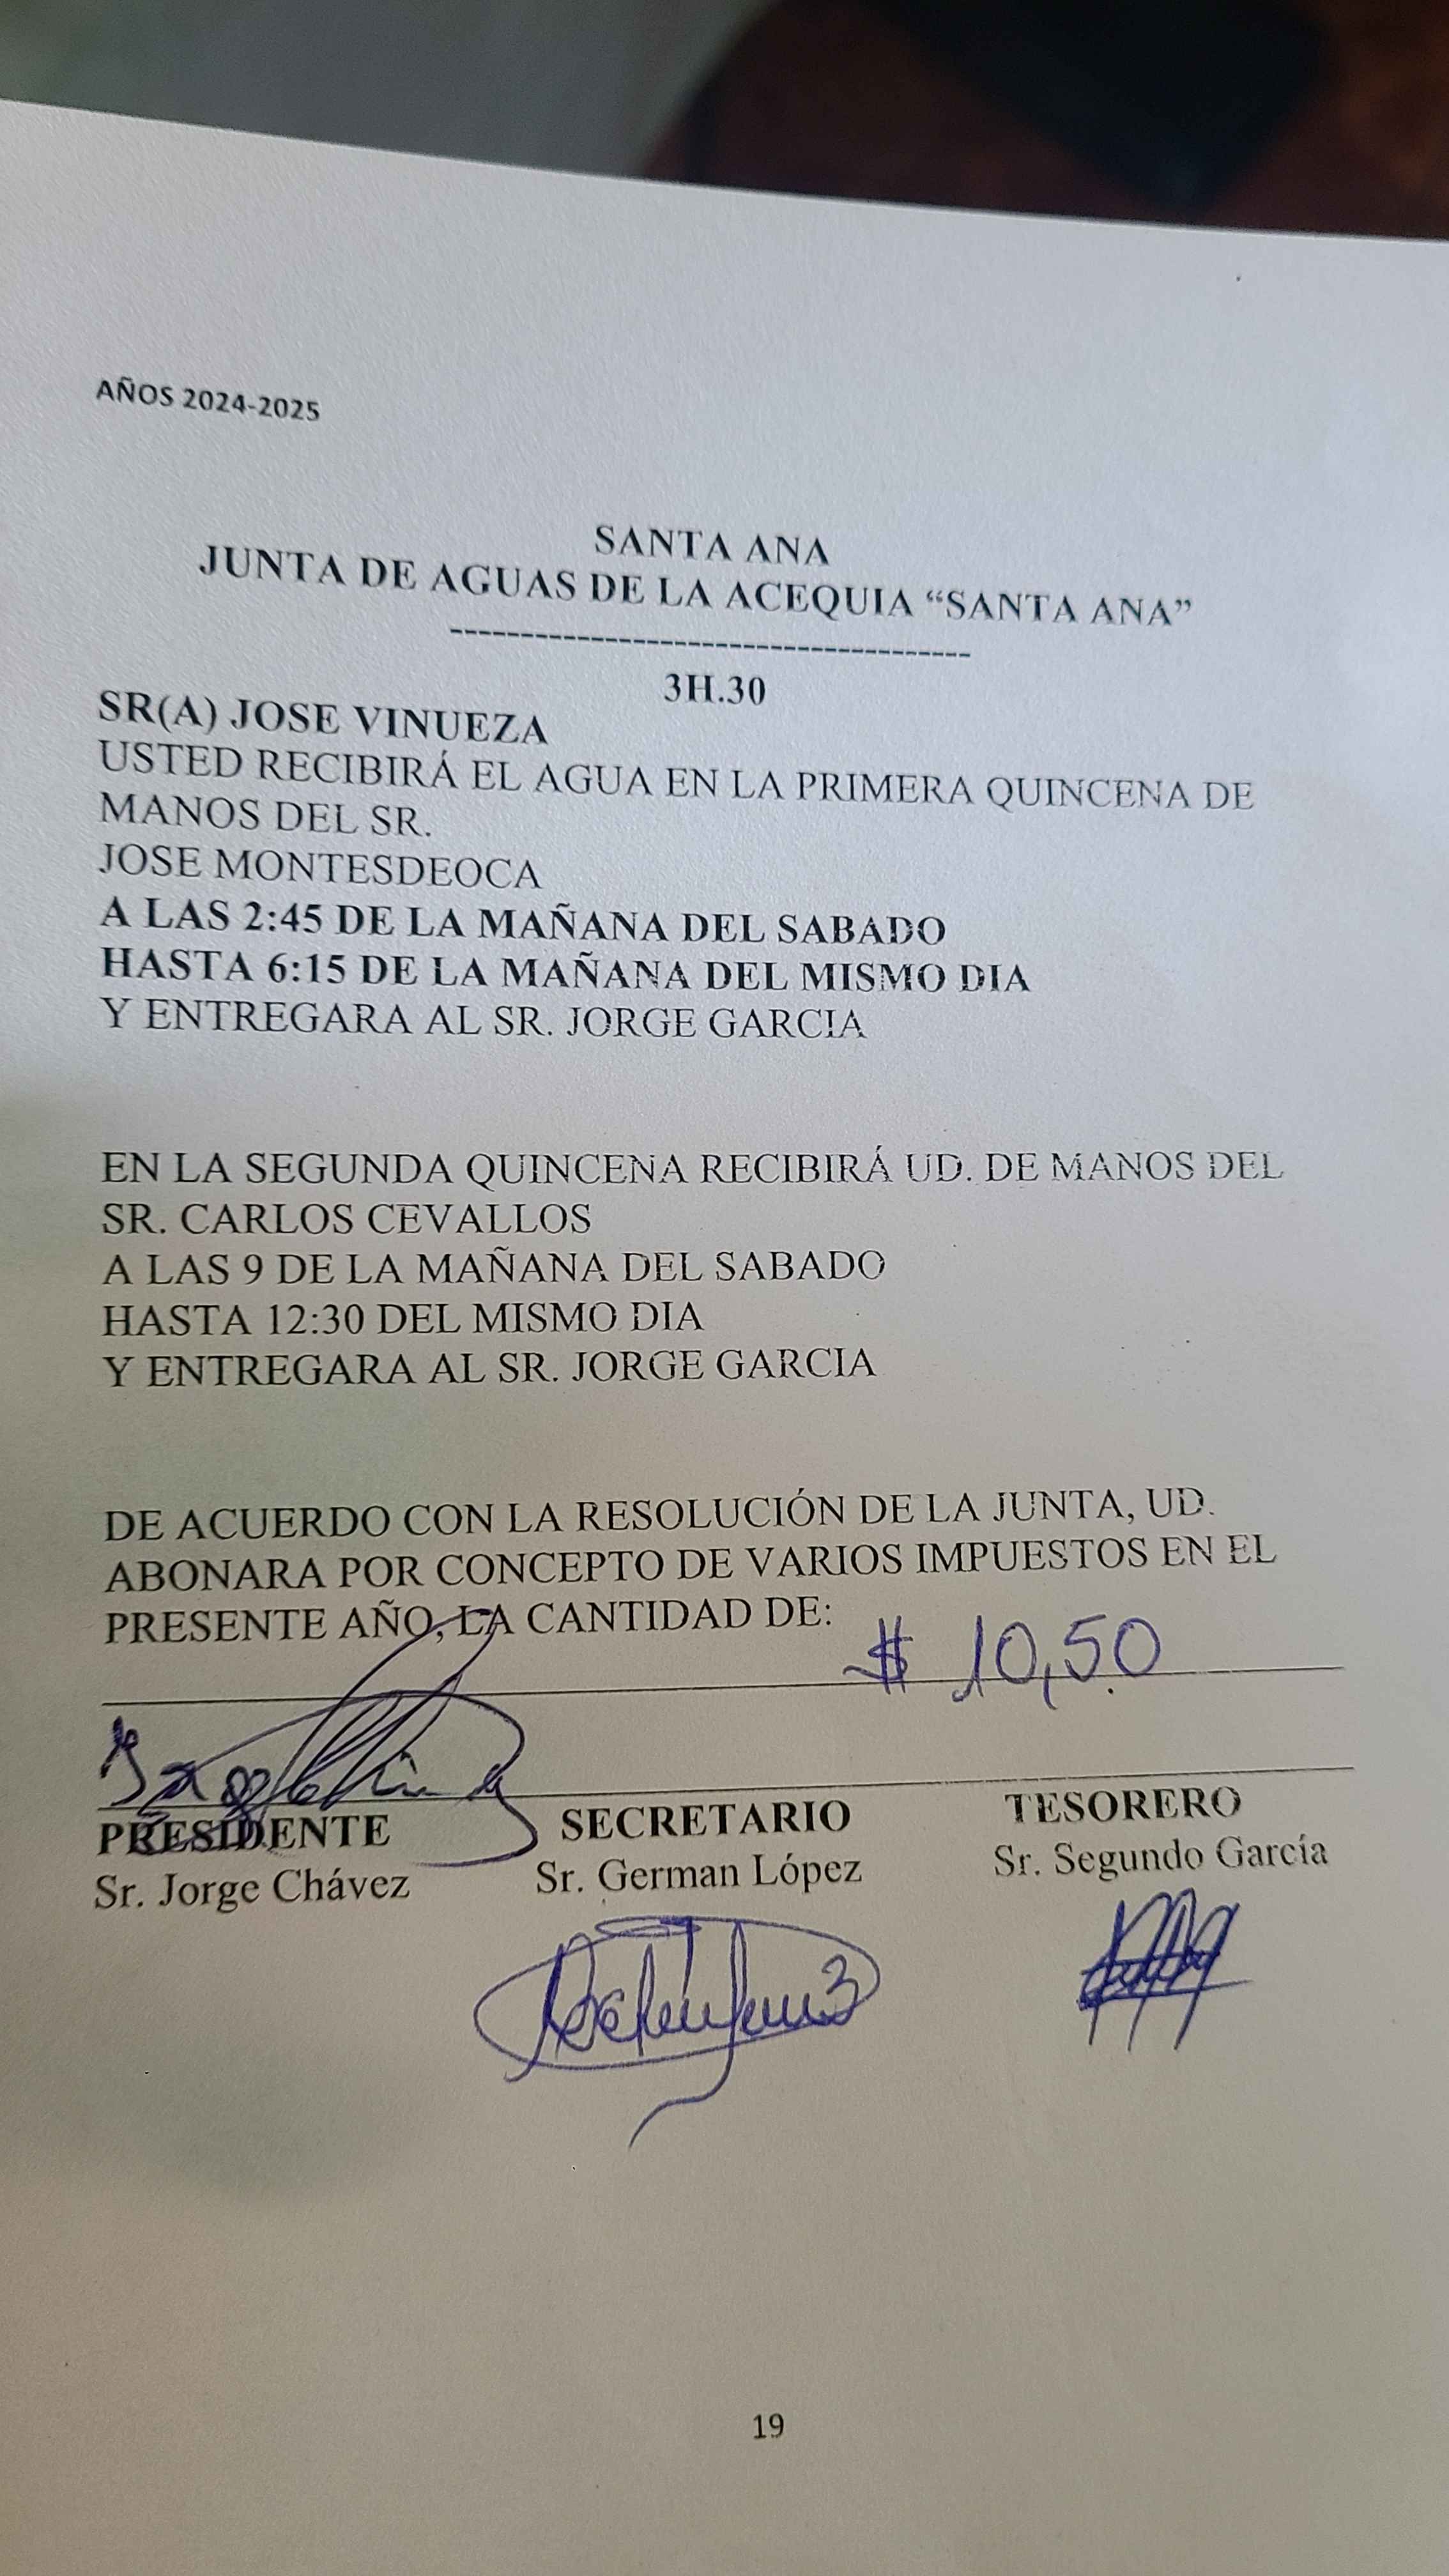 AÑOS 2024-2025
SANTA ANA
JUNTA DE AGUAS DE LA ACEQUIA “SANTA ANA”
-------------------------------------
3H.30
SR(A) JOSE VINUEZA
USTED RECIBIRÁ EL AGUA EN LA PRIMERA QUINCENA DE
MANOS DEL SR.
JOSE MONTESDEOCA
A LAS 2:45 DE LA MAÑANA DEL SABADO
HASTA 6:15 DE LA MAÑANA DEL MISMO DIA
Y ENTREGARA AL SR. JORGE GARCIA
EN LA SEGUNDA QUINCENA RECIBIRÁ UD. DE MANOS DEL
SR. CARLOS CEVALLOS
A LAS 9 DE LA MAÑANA DEL SABADO
HASTA 12:30 DEL MISMO DIA
Y ENTREGARA AL SR. JORGE GARCIA
DE ACUERDO CON LA RESOLUCIÓN DE LA JUNTA, UD.
ABONARA POR CONCEPTO DE VARIOS IMPUESTOS EN EL
PRESENTE AÑO, LA CANTIDAD DE:
$ 10,50
PRESIDENTE SECRETARIO TESORERO
Sr. Jorge Chávez Sr. German López Sr. Segundo García
19